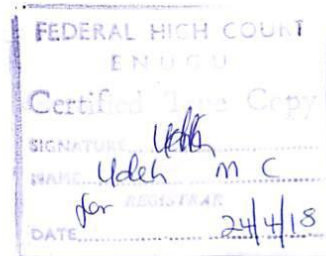 FEDERAL HIGH COURT
ENUGU
Certified True Copy
SIGNATURE
NAME Udeh M C
for REGISTRAR
DATE 24/4/18